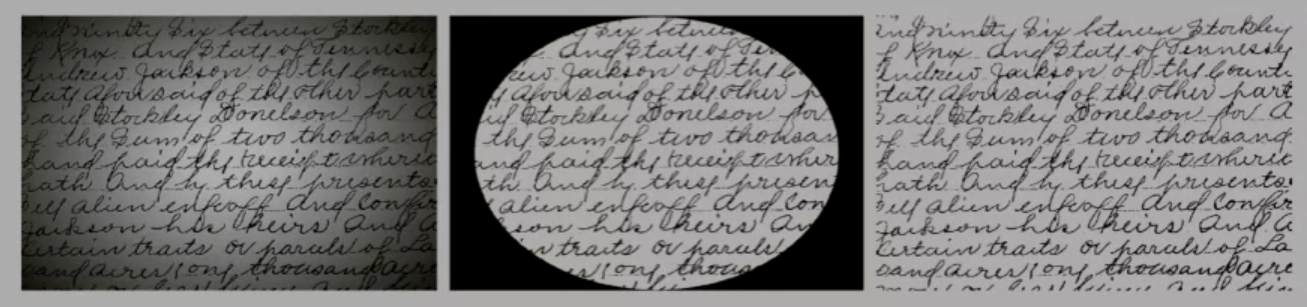 Ninety Six between Stockley
Knox and State of Tennessee
Andrew Jackson of the Count
tate aforesaid of the other part
aid Stockley Donelson for A
of the Sum of two thousand
hand paid the receipt wherei
hath and by these presents
ell alien enfeoff and Confir
Jackson his heirs and A
certain traits or parcels of La
sand acres (one thousand acre
Six between
and State of Ten
rew Jackson of the
aforesaid of the other p
Stockley Donelson for
the Sum of two thousan
and paid the receipt wher
th and by these presen
alien enfeoff and Con
son his heirs and
traits or parcels
one thous
Ninety Six between Stockley
Knox and State of Tennessee
Andrew Jackson of the Count
tate aforesaid of the other part
aid Stockley Donelson for A
of the Sum of two thousand
hand paid the receipt wherei
hath and by these presents
ell alien enfeoff and Confir
Jackson his heirs and A
certain traits or parcels of La
sand acres (one thousand acre